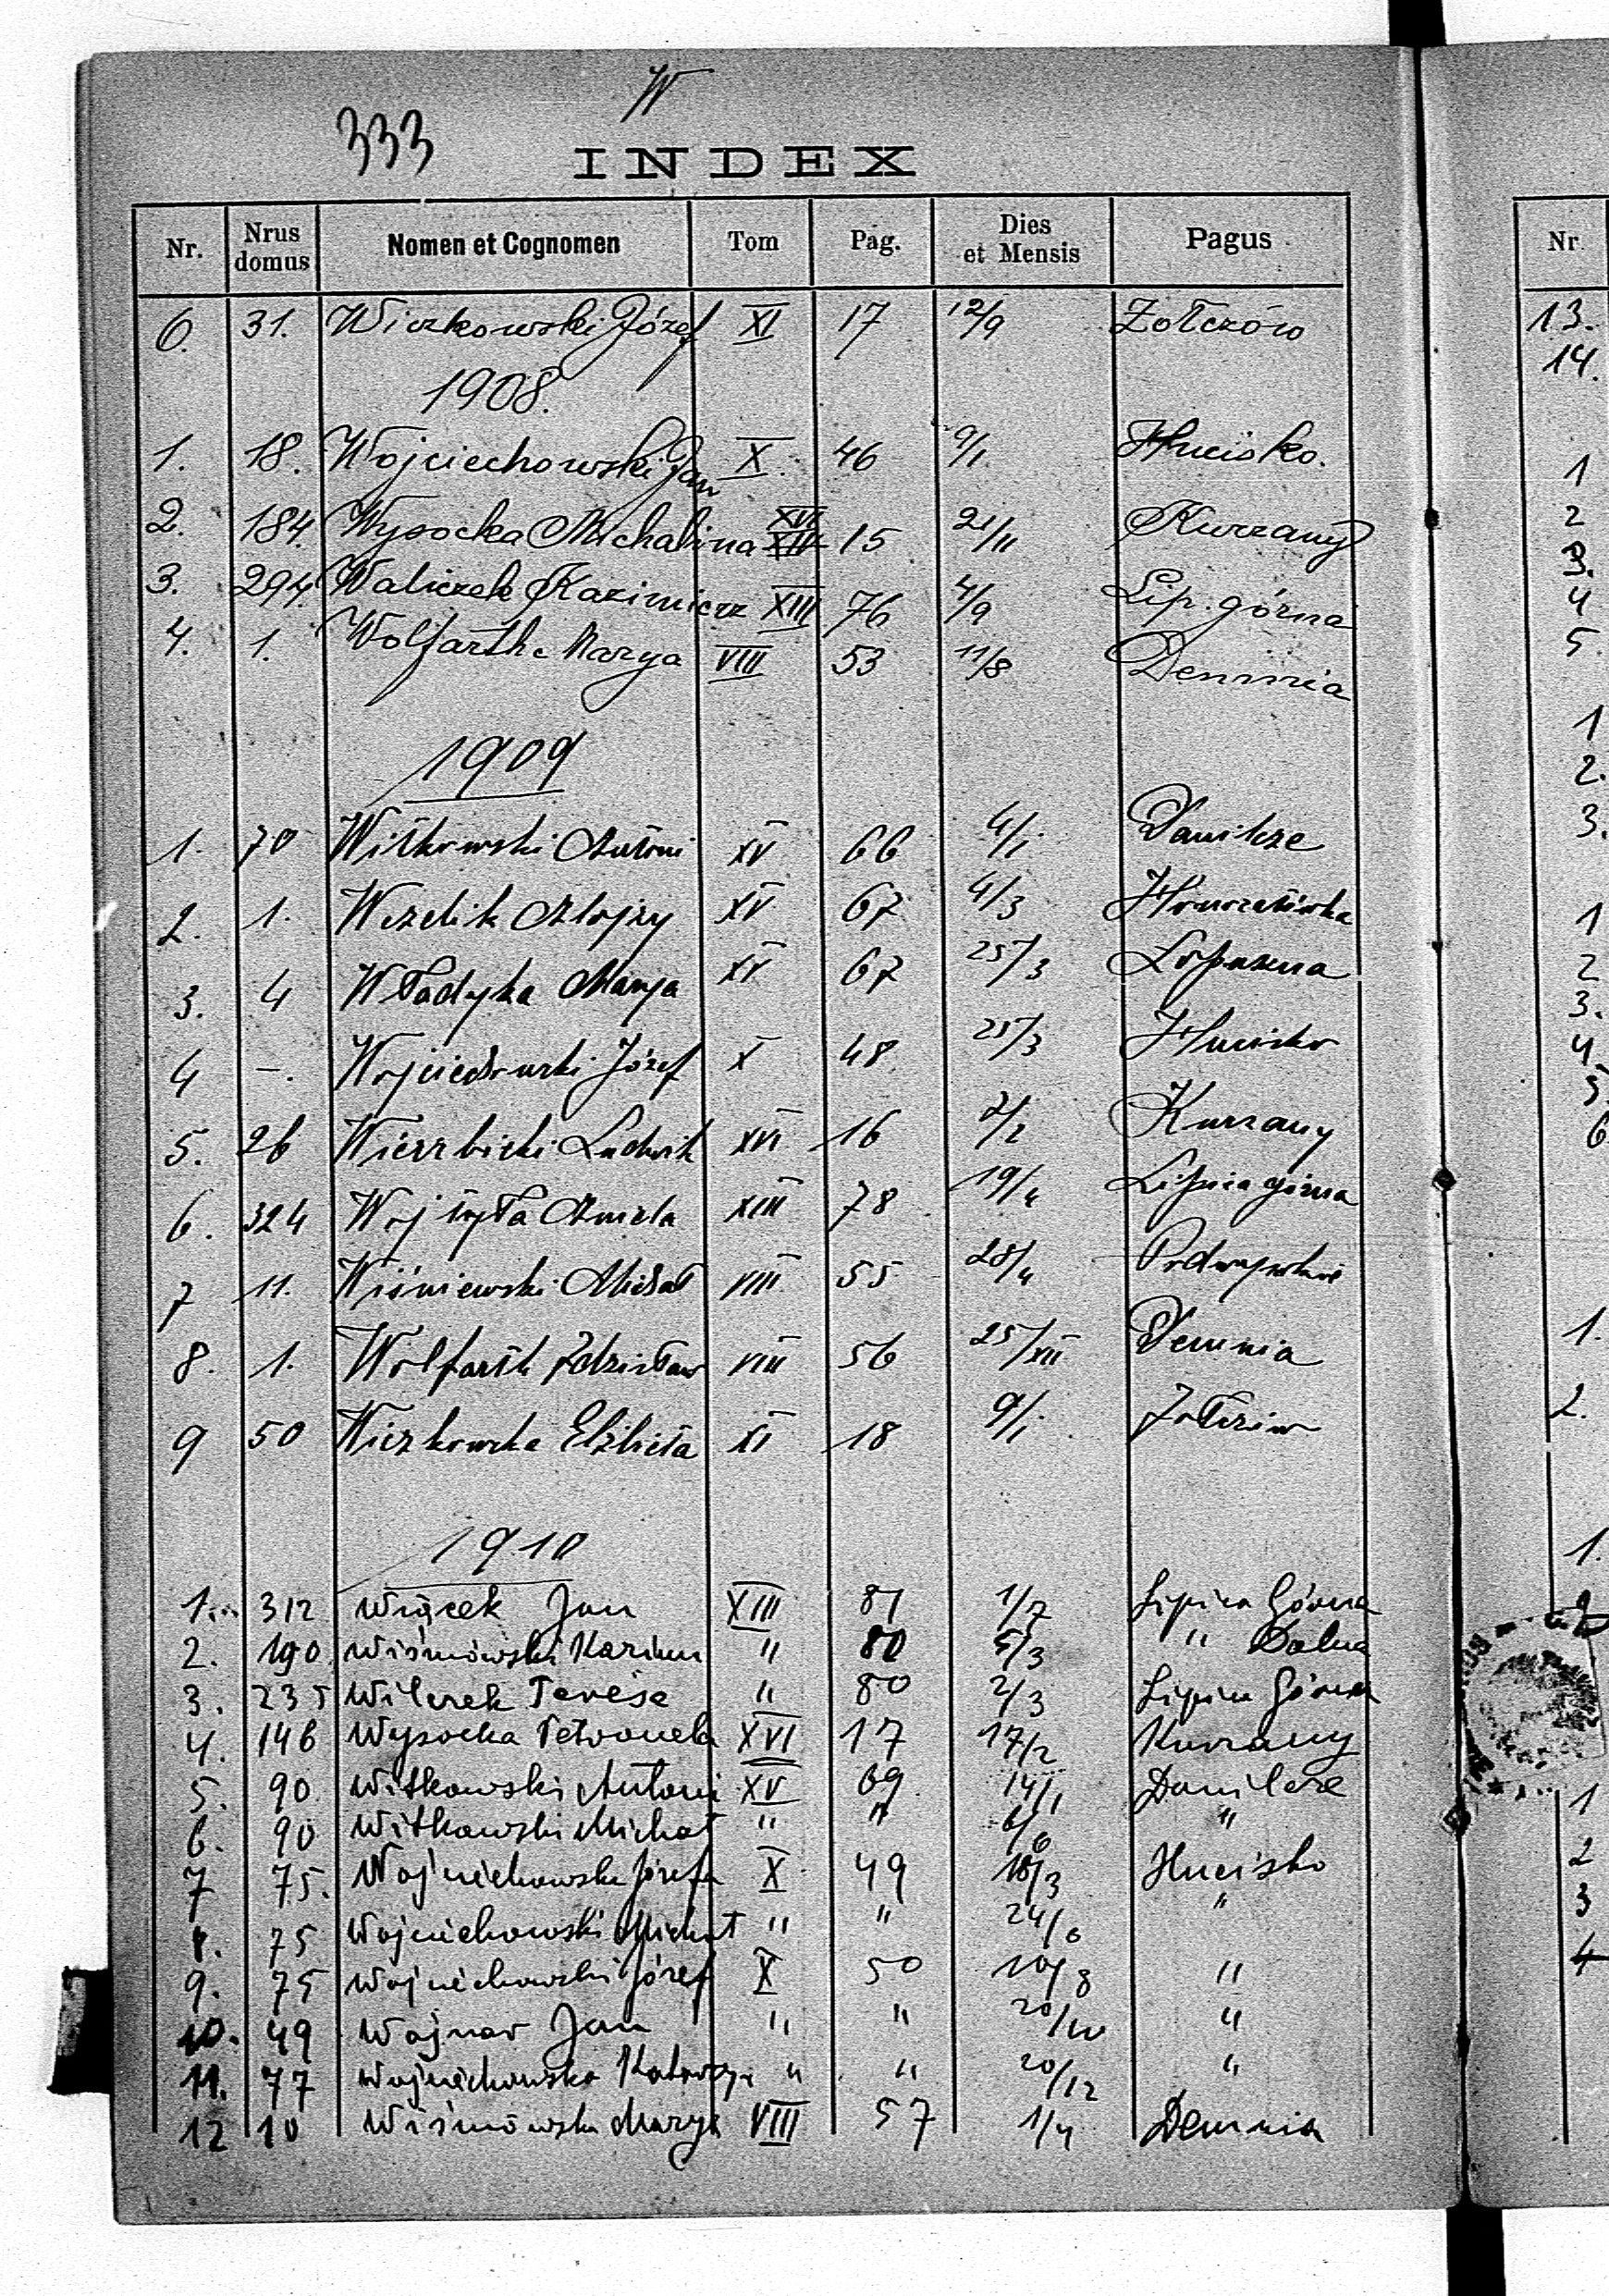 W
333
INDEX
Nr. Nrus domus Nomen et Cognomen Tom Pag. Dies et Mensis Pagus Nr
6. 31. Wiczkowski Józef XI 17 12/9 Żołczów
1908.
1. 18. Wojciechowski Jan X 46 9/1 Hucisko.
2. 184. Wysocka Michalina XVI XIV 15 21/11 Kurzany
3. 294. Waliczek Kazimierz XIII 76 4/9 Lip. górna
4. 1. Wolfarth Marya VIII 53 11/8 Demnia
1909
1. 70 Witkowski Antoni XV 66 4/1 Danilcze
2. 1. Wezdik Alojzy XV 67 4/3
3. 4 Władyka Marya XV 67 25/3 Łopuszna
4 -. Wojciechowski Józef X 48 25/3 Hucisko
5. 26 Wierzbicki Ludwik XVI 16 2/2 Kurzany
6. 324 Wojtyła Aniela XIII 78 19/4 Lipica górna
7 11. Wiśniewski Michał VIII 55 28/4
8. 1. Wolfarth Zdzisław VIII 56 25/XII Demnia
9 50 Wiczkowska Elżbieta XI 18 9/1 Żołczów
1910
1. 312 Wiącek Jan XIII 81 1/7 Lipica Górna
2. 190 Wiśniowski Kazim " 80 5/3 " Dolna
3. 235 Wilczek Teresa " 80 2/3 Lipica Górna
4. 146 Wysocka Petronela XVI 17 17/2 Kurzany
5. 90. Witkowski Antoni XV 69 14/1 Danilcze
6. 90 Witkowski Michał " " 6/6 "
7 75. Wojciechowska Józefa X 49 18/3 Hucisko
8. 75 Wojciechowski Michał " " 24/6 "
9. 75 Wojciechowski Józef X 50 10/8 "
10. 49 Wojnar Jan " " 20/10 "
11. 77 Wojciechowska Katarzy. " " 20/12 "
12 10 Wiśniowska Marya VIII 57 1/4 Demnia
13.
14.
1
2
3.
4
5.
1
2.
3.
1
2
3.
4
5.
6
1.
2.
1.
1
2
3
4